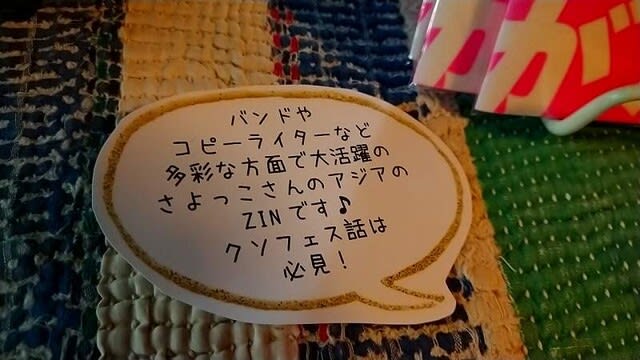 バンドや
コピーライターなど
多彩な方面で大活躍の
さよっこさんのアジアの
ZINです♪
クソフェス話は
必見!
が